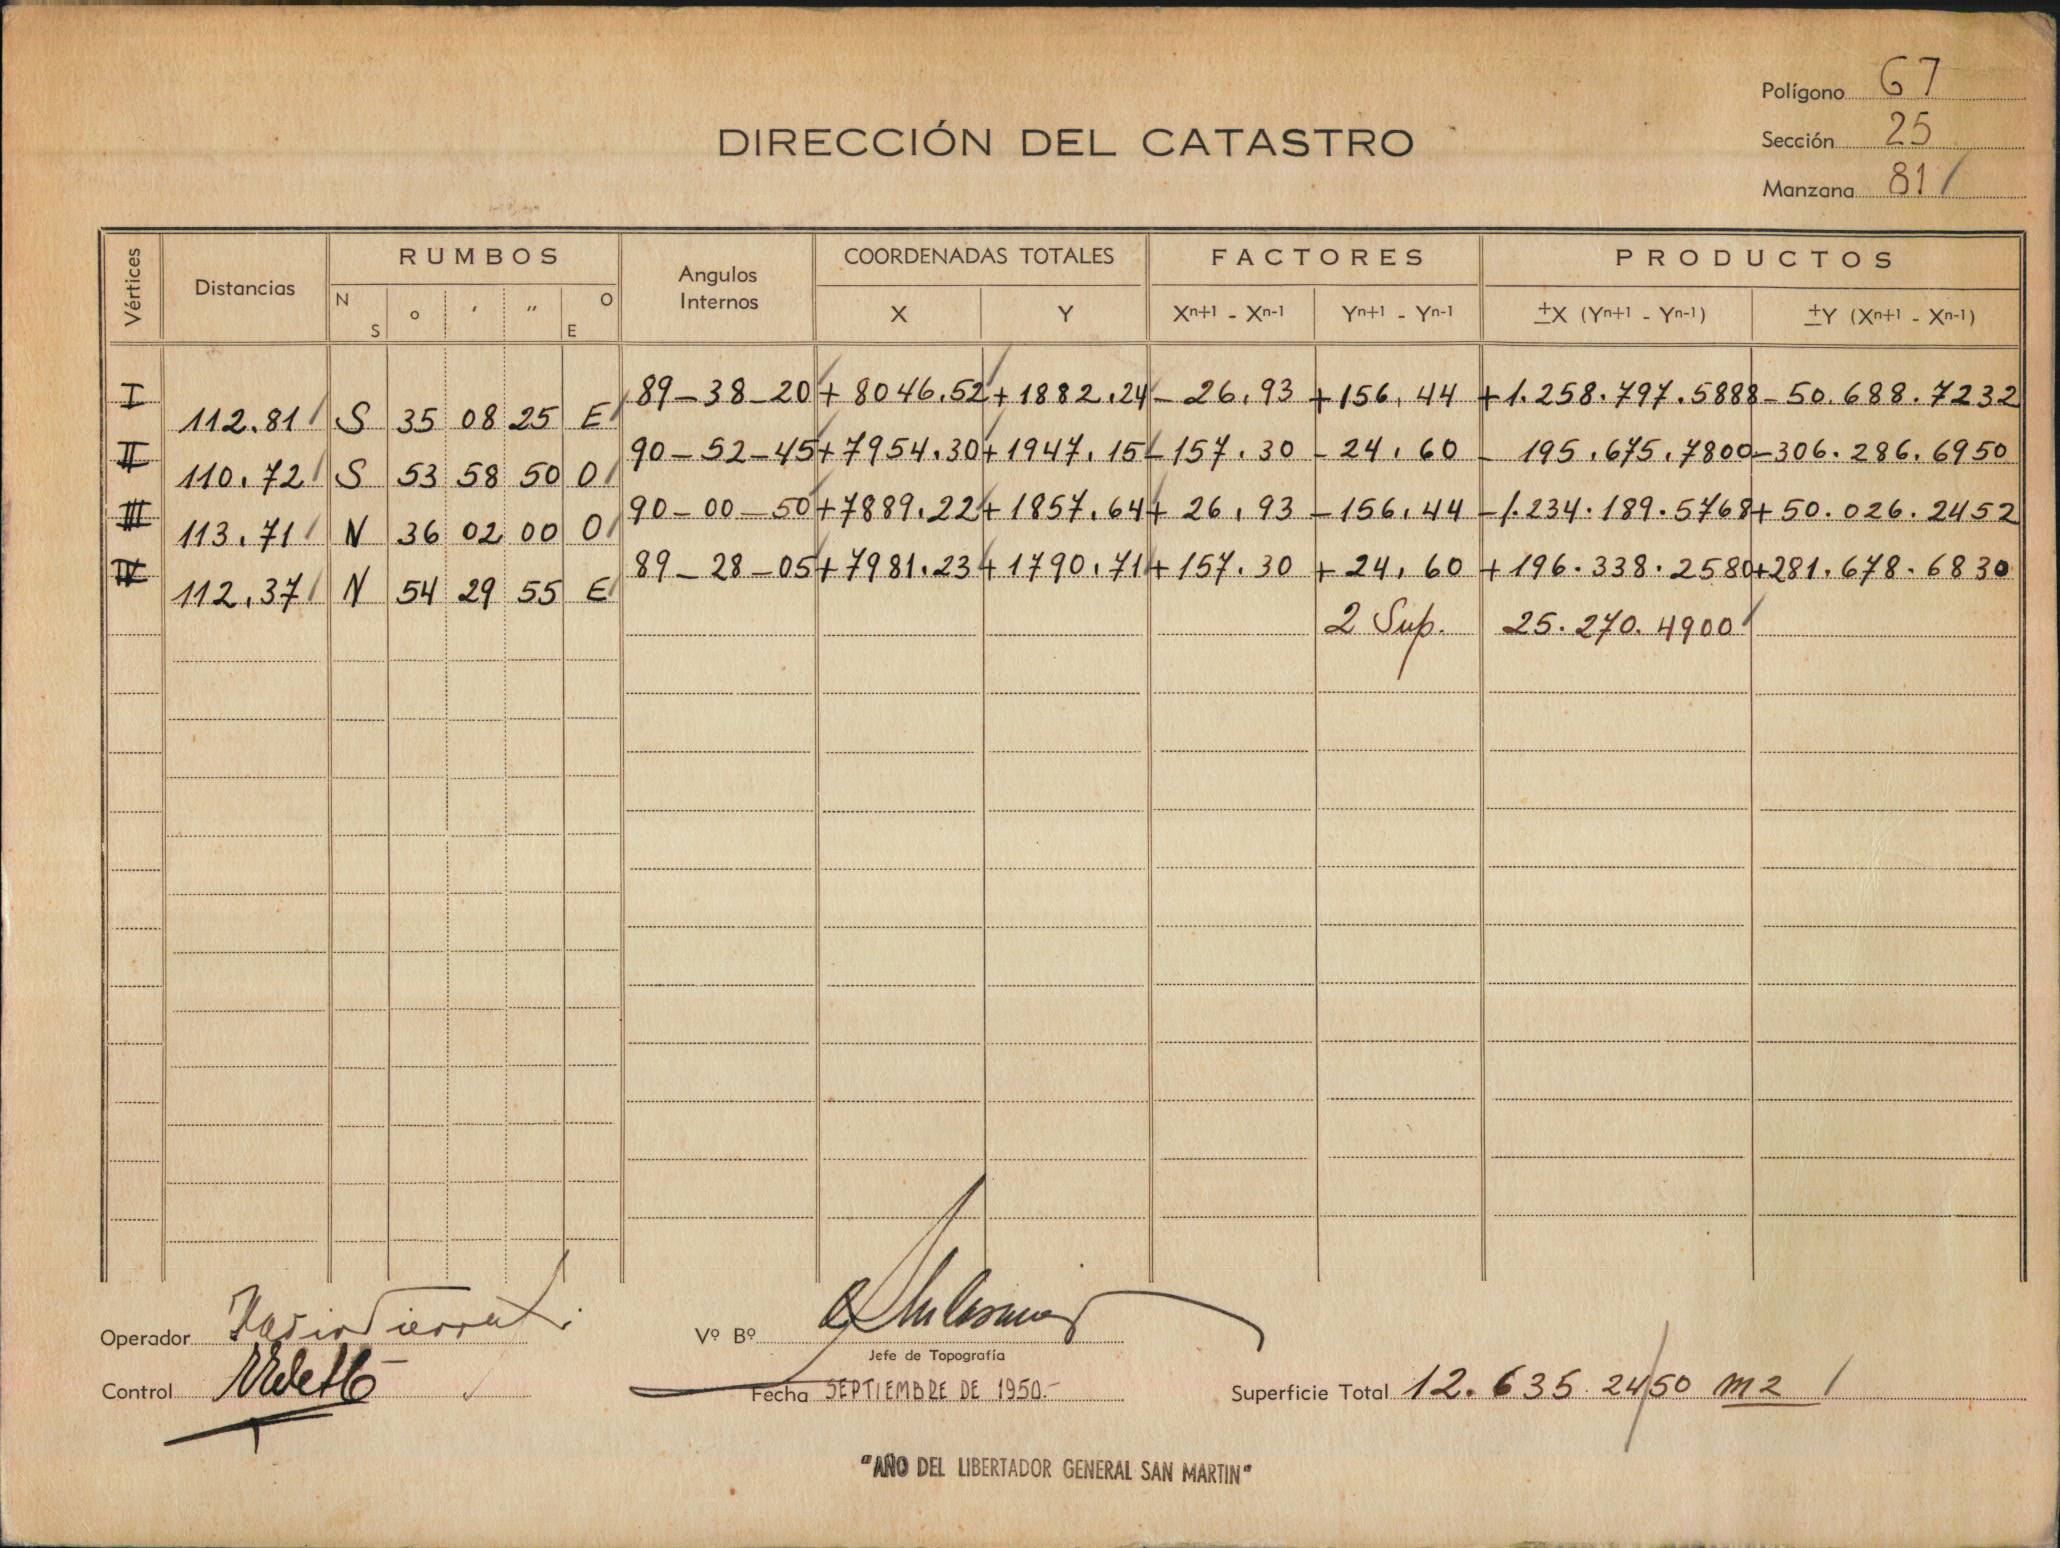 Polígono 67
DIRECCIÓN DEL CATASTRO
Sección 25
Manzana 81 /
Vértices Distancias RUMBOS Angulos Internos COORDENADAS TOTALES FACTORES PRODUCTOS
N S ° ' " O E X Y Xn+1 - Xn-1 Yn+1 - Yn-1 ±X (Yn+1 - Yn-1) ±Y (Xn+1 - Xn-1)
I 89-38-20 + 8046.52 + 1882.24 - 26.93 + 156.44 + 1.258.797.5888 - 50.688.7232
112.81 S 35 08 25 E
II 90-52-45 + 7954.30 + 1947.15 - 157.30 - 24.60 - 195.675.7800 - 306.286.6950
110.72 S 53 58 50 O
III 90-00-50 + 7889.22 + 1857.64 + 26.93 - 156.44 - 1.234.189.5768 + 50.026.2452
113.71 N 36 02 00 O
IV 89-28-05 + 7981.23 + 1790.71 + 157.30 + 24.60 + 196.338.2580 + 281.678.6830
112.37 N 54 29 55 E
2 Sup. 25.270.4900
Operador
Vº Bº
Jefe de Topografía
Control
Fecha SEPTIEMBRE DE 1950.-
Superficie Total 12.635.2450 m2 /
"AÑO DEL LIBERTADOR GENERAL SAN MARTIN"